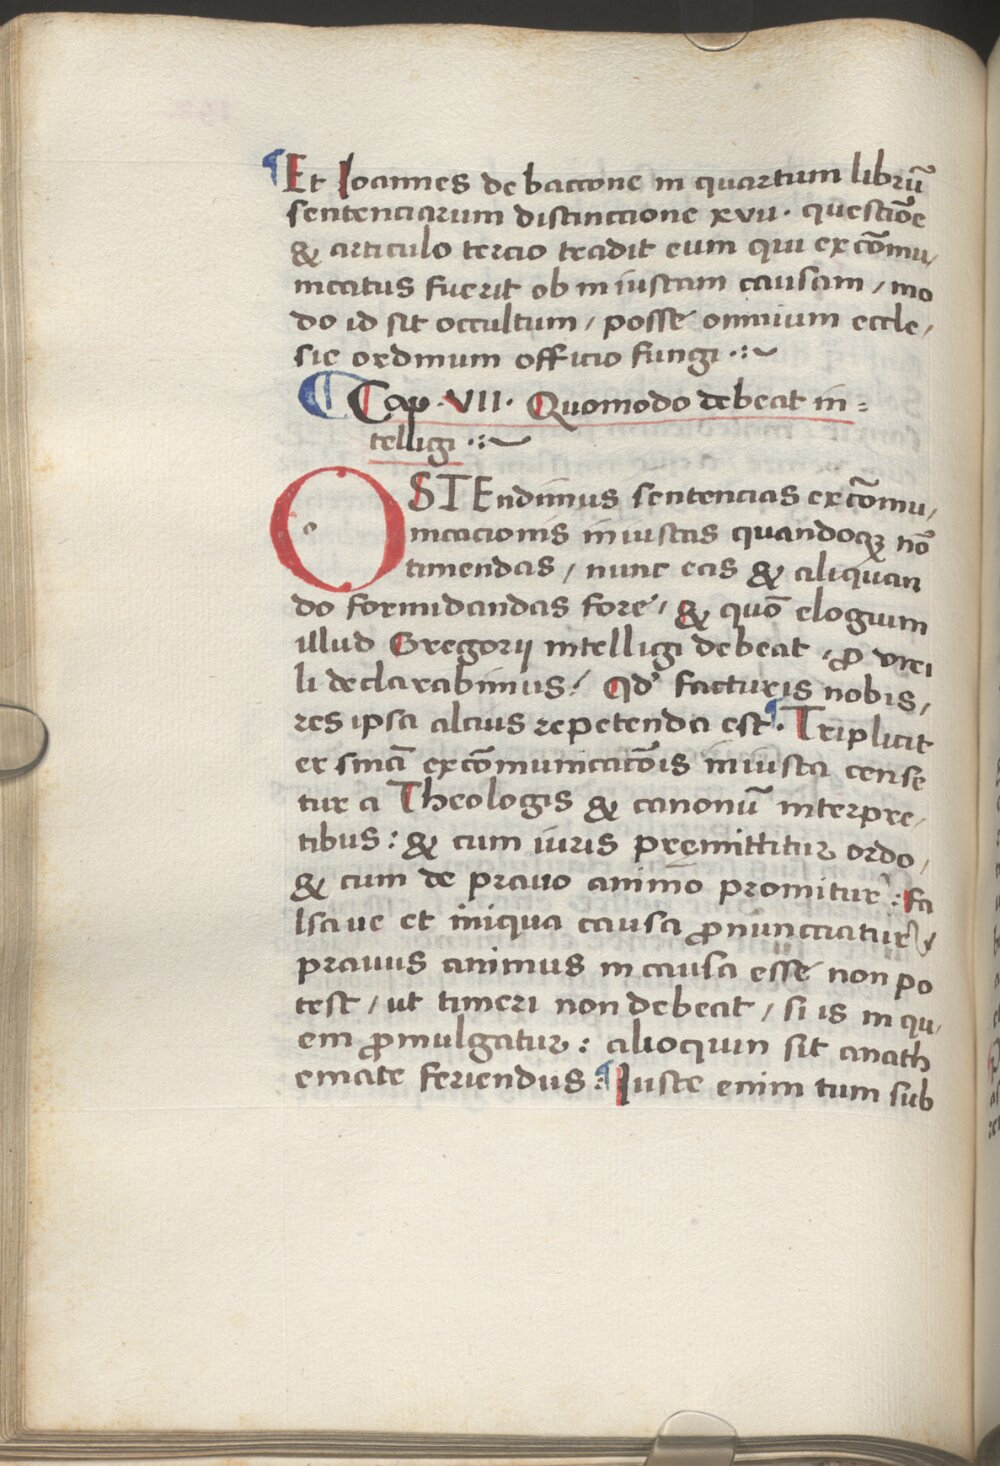 ¶Et Ioannes de baccone in quartum librū
sentenciarum distinccione xvii. questiōe
& articulo tercio tradit eum qui excōmu/
nicatus fuerit ob iniustam causam / mo
do id sit occultum / posse omnium eccle/
sie ordinum officio fungi .:~
¶ Cap. VII. Quomodo debeat in=
telligi .:~
OSTEndimus sentencias excōmu/
nicacionis iniustas quandoqꝫ nō
timendas / nunc eas & aliquan
do formidandas fore / & quō elogium
illud Gregorij intelligi debeat / ꝓ viri
li declarabimus / Qd' facturis nobis /
res ipsa alcius repetenda est. ¶Triplicit
er snīa excōmunicatōis iniusta cense
tur a Theologis & canonū interpre/
tibus : & cum iuris pręmittitur ordo /
& cum de prauo animo promitur : Fa
lsaue et iniqua causa ꝓnunciatur
prauus animus in causa esse non po
test / ut timeri non debeat / si is in qu/
em ꝓmulgatur : alioquin sit anath
emate feriendus : ¶Iuste enim tum sub